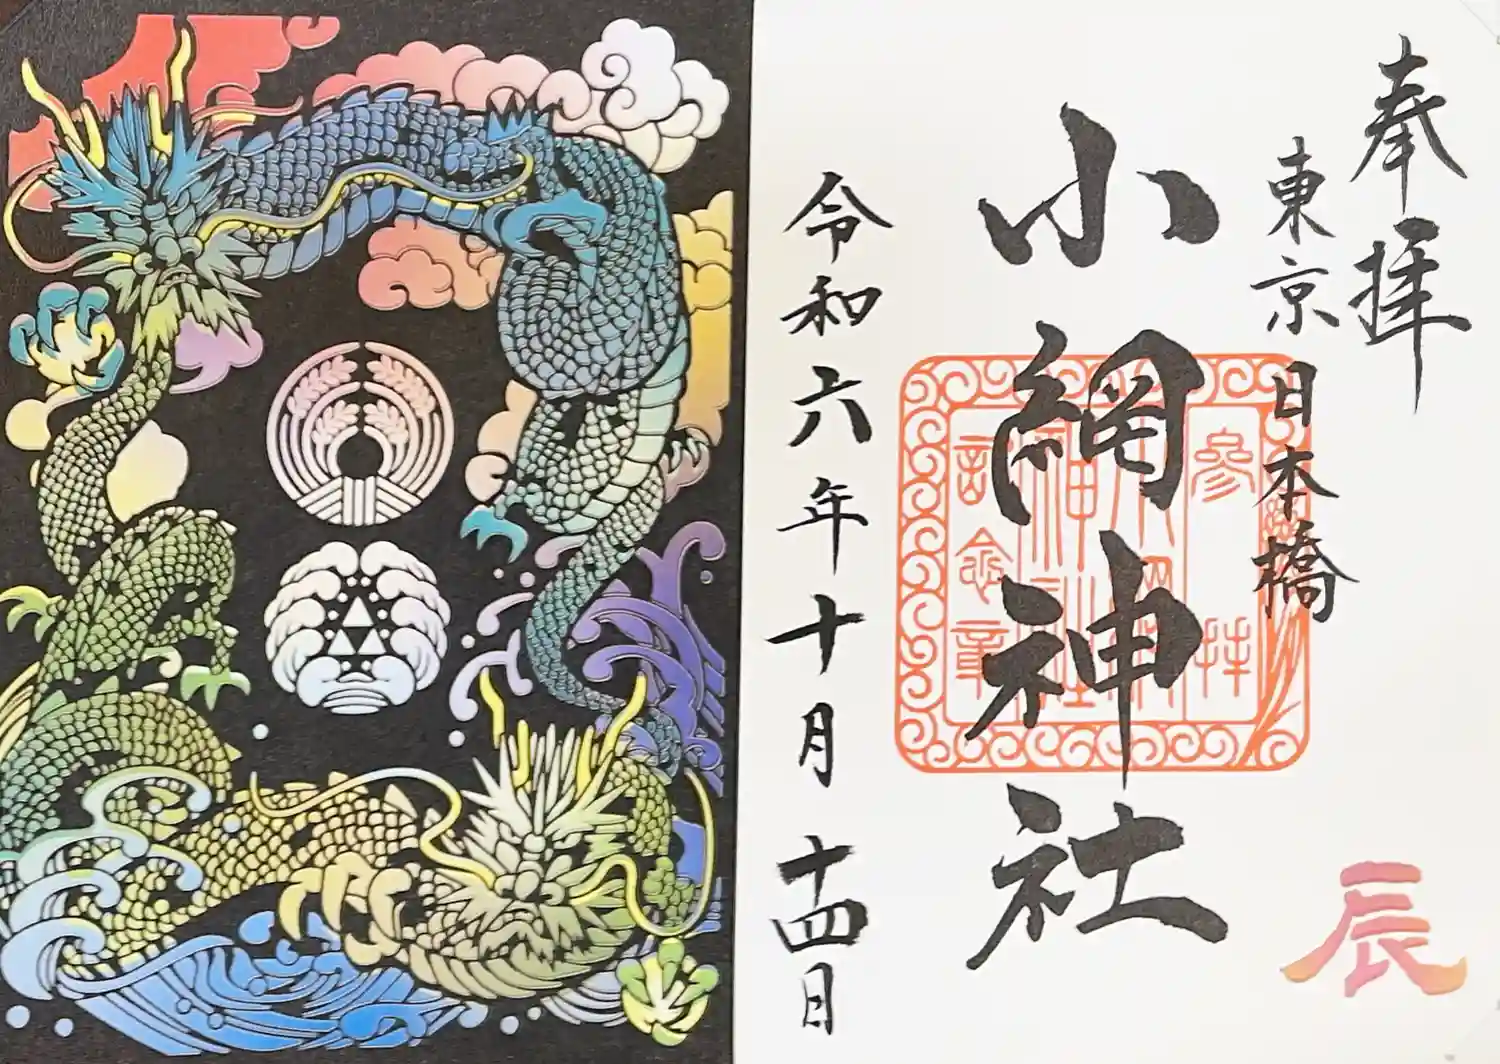 奉拝
東京 日本橋
小網神社
令和六年十月十四日
参拝
小網神社
記念章
辰